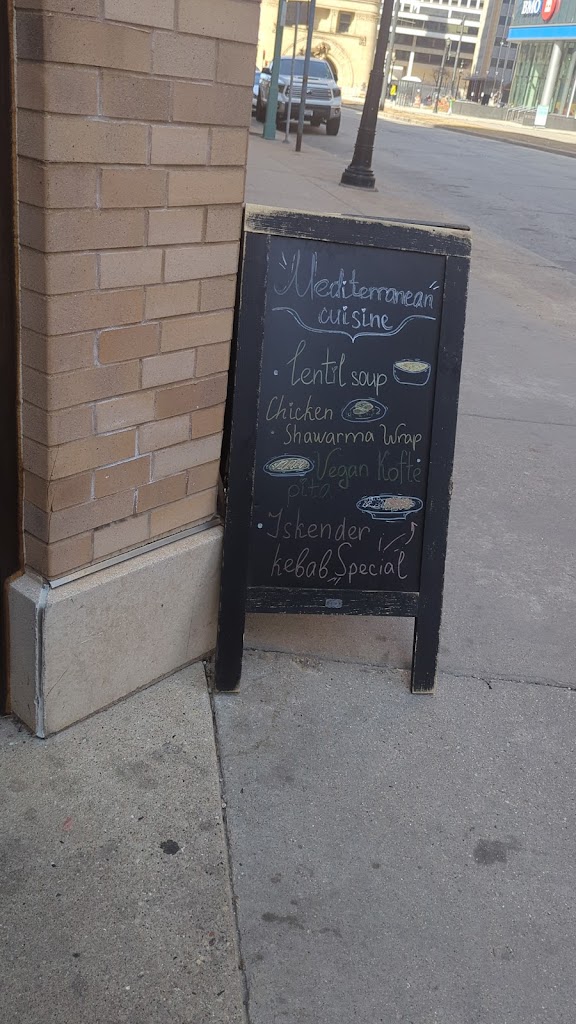 BMO
Mediterranean
cuisine
• lentil soup
Chicken
• Shawarma Wrap
Vegan Kofte •
pita
• Iskender
kebab Special